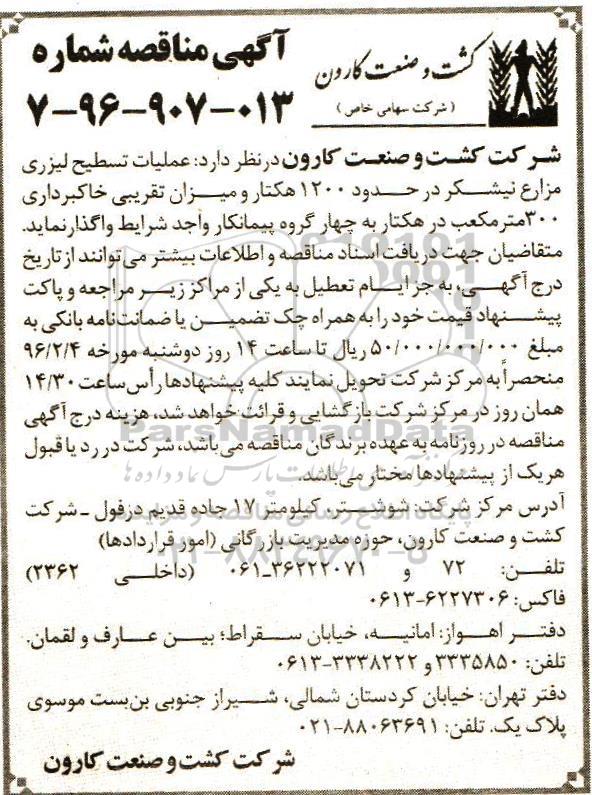 آگهی مناقصه شماره
۷-۹۶-۹۰۷-۰۱۳
کشت و صنعت کارون
( شرکت سهامی خاص )
شرکت کشت و صنعت کارون در نظر دارد: عملیات تسطیح لیزری
مزارع نیشکر در حدود ۱۲۰۰ هکتار و میزان تقریبی خاکبرداری
۳۰۰مترمکعب در هکتار به چهار گروه پیمانکار واجد شرایط واگذار نماید.
متقاضیان جهت دریافت اسناد مناقصه و اطلاعات بیشتر می‌توانند از تاریخ
درج آگهی، به جز ایام تعطیل به یکی از مراکز زیر مراجعه و پاکت
پیشنهاد قیمت خود را به همراه چک تضمین یا ضمانت‌نامه بانکی به
مبلغ ۵۰/۰۰۰/۰۰۰/۰۰۰ ریال تا ساعت ۱۴ روز دوشنبه مورخه ۹۶/۲/۴
منحصراً به مرکز شرکت تحویل نمایند کلیه پیشنهادها رأس ساعت ۱۴/۳۰
همان روز در مرکز شرکت بازگشایی و قرائت خواهد شد، هزینه درج آگهی
مناقصه در روزنامه به عهده برندگان مناقصه می‌باشد، شرکت در رد یا قبول
هر یک از پیشنهادها مختار می‌باشد.
آدرس مرکز شرکت: شوشتر، کیلومتر ۱۷ جاده قدیم دزفول ـ شرکت
کشت و صنعت کارون، حوزه مدیریت بازرگانی (امور قراردادها)
تلفن: ۷۲ و ۳۶۲۲۲۰۷۱-۰۶۱ (داخلی ۲۳۶۲)
فاکس: ۶۲۲۷۳۰۶-۰۶۱۳
دفتر اهواز: امانیه، خیابان سقراط؛ بین عارف و لقمان.
تلفن: ۳۳۳۵۸۵۰ و ۳۳۳۸۲۲۲-۰۶۱۳
دفتر تهران: خیابان کردستان شمالی، شیراز جنوبی بن‌بست موسوی
پلاک یک. تلفن: ۸۸۰۶۳۶۹۱-۰۲۱
شرکت کشت و صنعت کارون
ParsNamadData